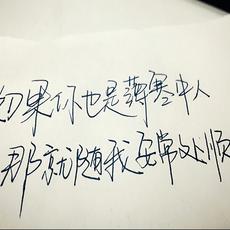 如果你也是薄寒中人
那就随我安常处顺